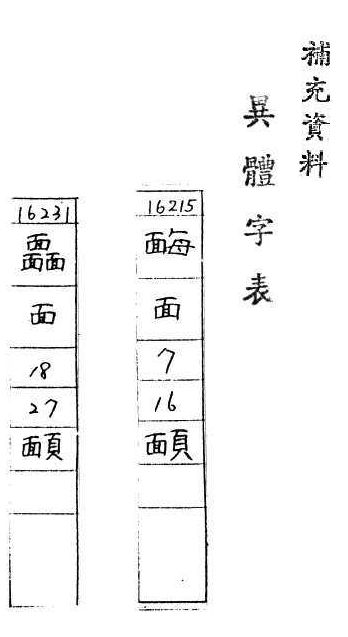 補充資料
異體字表
16215
面
7
16
16231
面
18
27